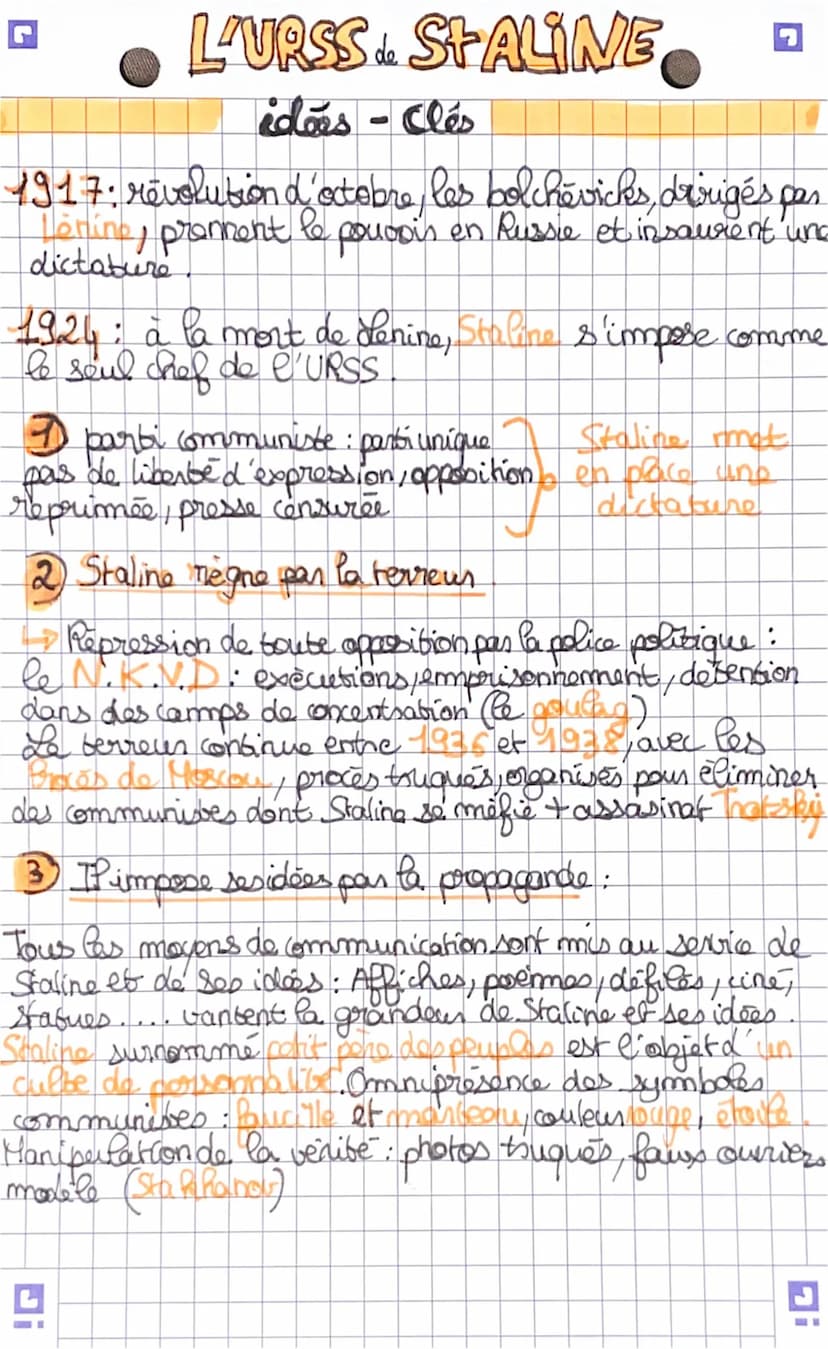 L'URSS de STALINE
idées - clés
1917 : révolution d'octobre, les bolchévicks, dirigés par
Lénine, prennent le pouvoir en Russie et insaurent une
dictature.
1924 : à la mort de Lénine, Staline s'impose comme
le seul chef de l'URSS.
1 parti communiste : parti unique
pas de liberté d'expression, opposition
réprimée, presse censurée
Staline met
en place une
dictature
2 Staline règne par la terreur
↳ Répression de toute opposition par la police politique :
le N.K.V.D : exécutions, emprisonnement, détention
dans des camps de concentration (le goulag)
La terreur continue entre 1936 et 1938, avec les
Procès de Moscou, procès truqués, organisés pour éliminer
des communistes dont Staline se méfie + assasinat Trotsky
3 Il impose ses idées par la propagande :
Tous les moyens de communication sont mis au service de
Staline et de ses idées : Affiches, poèmes, défilés, ciné,
statues.... vantent la grandeur de Staline et ses idées.
Staline surnommé petit père des peuples est l'objet d'un
culte de personnalité. Omniprésence des symboles
communistes : faucille et marteau, couleur rouge, étoile.
Manipulation de la vérité : photos truqués, faux ouvriers
modèle (Stakhanov)